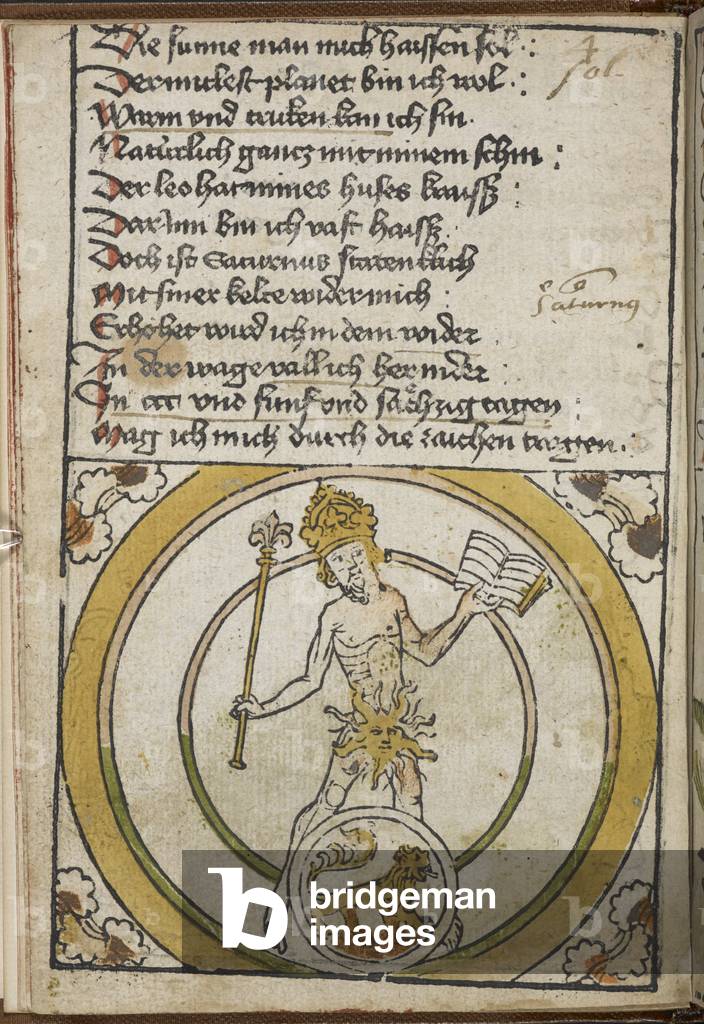 Die sunne man mich haissen sol :
Der mitlest planet bin ich wol :
Warm vnd truken kan ich sin .
Natürlich gancz mit minem schin :
Der leo hat mines huses kraissz :
Darumm bin ich vast haissz .
Doch ist Saturnus stätenklich
Mit siner kelte wider mich :
Erhöhet wurd ich in dem wider
In der wage vall ich her nider :
In ccc vnd funf vnd sächzig tagen :
Mag ich mich durch die zaichen tragen .
4
Sol
Saturnus
bridgeman
images